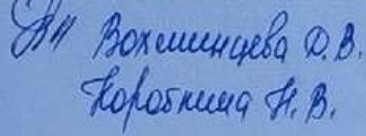 Вохминцева Д.В.
Коробкина Н.В.